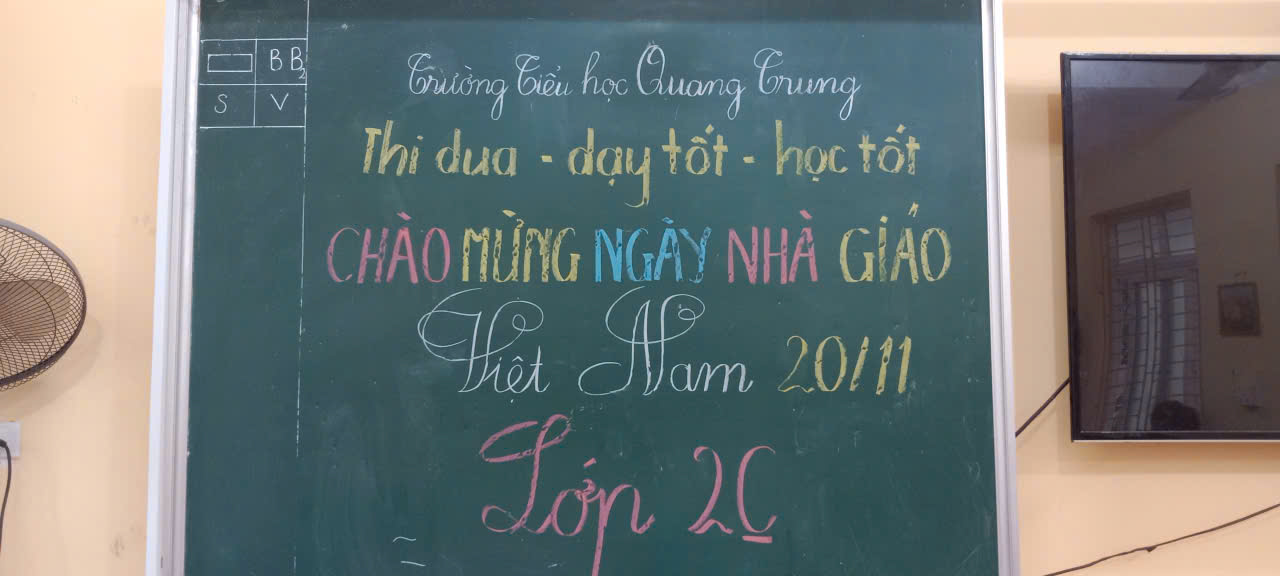 BB2
S V
Trường Tiểu học Quang Trung
Thi dua - dạy tốt - học tốt
CHÀO MỪNG NGÀY NHÀ GIÁO
Việt Nam 20/11
Lớp 2C